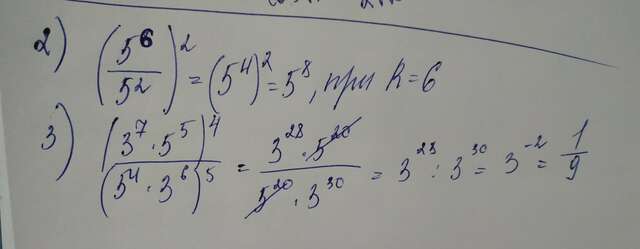 2) (5^6/5^2)^2 = (5^4)^2 = 5^8, при k = 6
3) (3^7 · 5^5)^4/(5^4 · 3^6)^5 = 3^28 · 5^20/5^20 · 3^30 = 3^28 : 3^30 = 3^-2 = 1/9